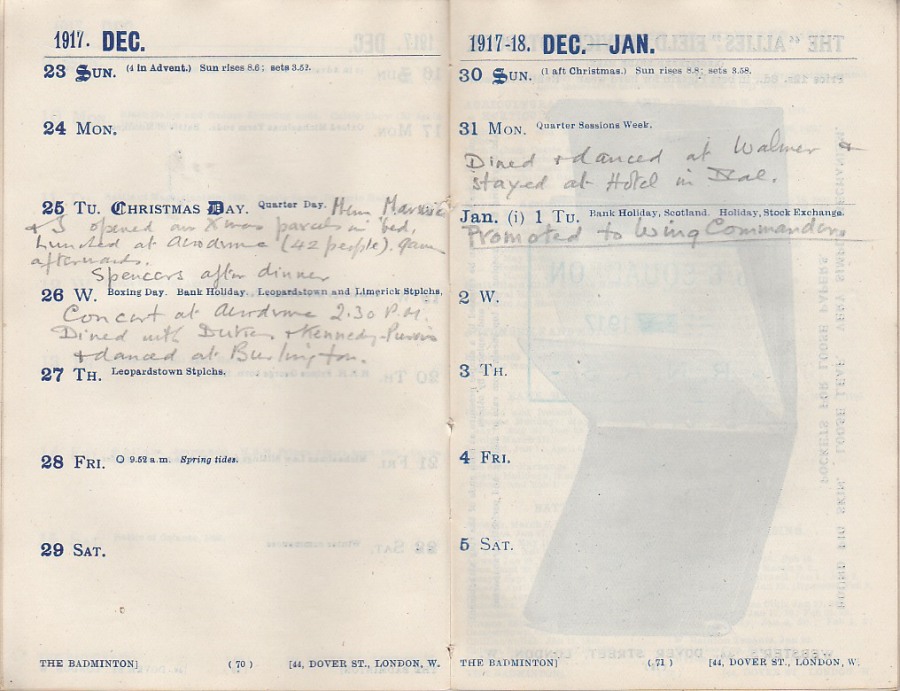 1917. DEC.
23 SUN. (4 in Advent.) Sun rises 8.6; sets 3.52.
24 MON.
25 TU. CHRISTMAS DAY. Quarter Day. Mem.
& I opened our Xmas parcels in bed.
Lunched at Aerodrome (42 people). Game
afterwards.
Spencers after dinner
26 W. Boxing Day. Bank Holiday. Leopardstown and Limerick Stplchs.
Concert at Aerodrome 2.30 P.M.
Dined with & Kennedy-Purvis
& danced at Burlington.
27 TH. Leopardstown Stplchs.
28 FRI. O 9.52 a.m. Spring tides.
29 SAT.
THE BADMINTON] (70) [44, DOVER ST., LONDON, W.
1917-18. DEC.-JAN.
30 SUN. (1 aft Christmas.) Sun rises 8.8; sets 3.58.
31 MON. Quarter Sessions Week.
Dined & danced at Walmer &
stayed at Hotel in Deal.
Jan. (i) 1 TU. Bank Holiday, Scotland. Holiday, Stock Exchange.
Promoted to Wing Commander
2 W.
3 TH.
4 FRI.
5 SAT.
THE BADMINTON] (71) [44, DOVER ST., LONDON, W.